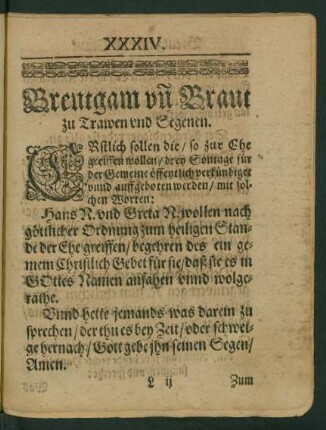 XXXIV.
Breutgam vñ Braut
zu Trawen vnd Segenen.
ERstlich sollen die / so zur Ehe
greiffen wollen / drey Sontage für
der Gemeine öffentlich verkündiget
vnnd auffgeboten werden / mit sol-
chen Worten:
Hans N. vnd Greta N. wollen nach
göttlicher Ordnung zum heiligen Stan-
de der Ehe greiffen / begehren des ein ge-
mein Christlich Gebet für sie / daß sie es in
GOttes Namen anfahen vnnd wolge-
rathe.
Vnnd hette jemands was darein zu
sprechen / der thu es bey Zeit / oder schwei-
ge hernach / Gott gebe jhn seinen Segen /
Amen.
L ij Zum